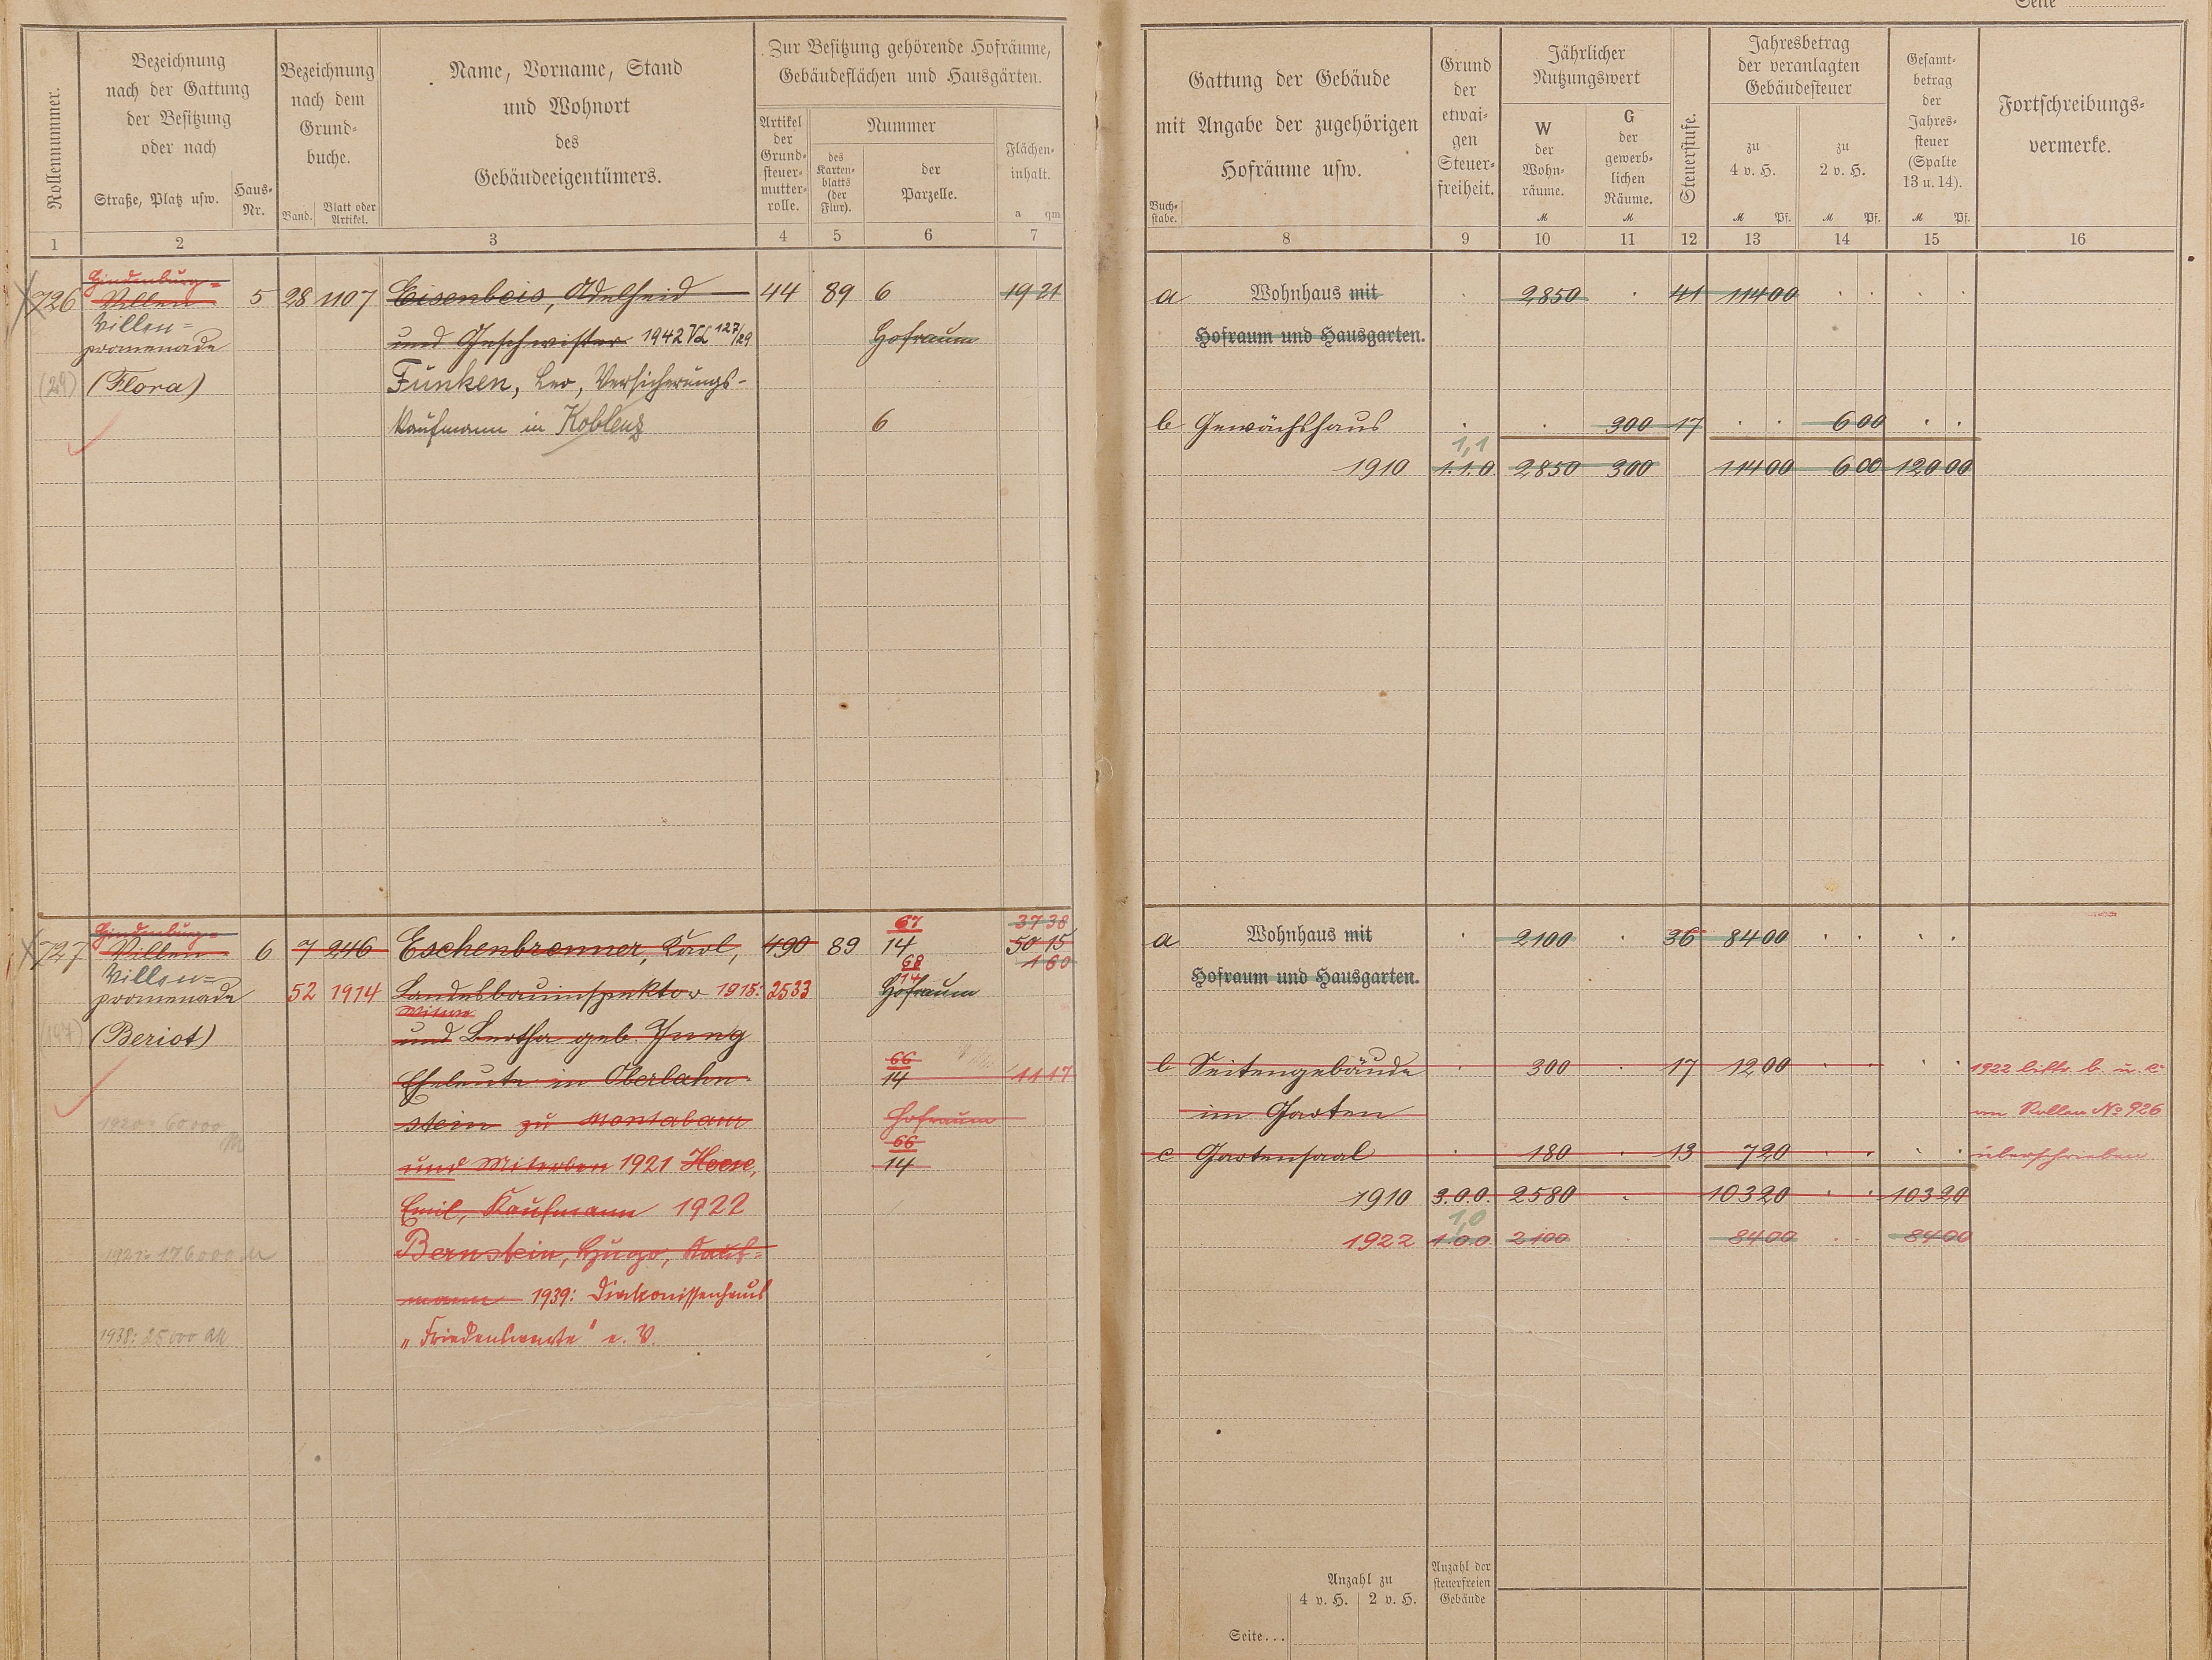 Seite
Rollennummer.
Bezeichnung
nach der Gattung
der Besitzung
oder nach
Straße, Platz usw.
Haus-
Nr.
Bezeichnung
nach dem
Grund-
buche.
Band.
Blatt oder
Artikel.
Name, Vorname, Stand
und Wohnort
des
Gebäudeeigentümers.
Zur Besitzung gehörende Hofräume,
Gebäudeflächen und Hausgärten.
Artikel
der
Grund-
steuer-
mutter-
rolle.
Nummer
des
Karten-
blatts
(der
Flur).
der
Parzelle.
Flächen-
inhalt.
a qm
1 2 3 4 5 6 7
Hindenburg-
726 Villen 5 28 1107 Eisenbeis, Adelheid 44 89 6 19 21
Villen-
promenade und Geschwister 1942 VL 127/29 Hofraum
(29) (Flora) Funken, Leo, Versicherungs-
Kaufmann in Koblenz 6
Hindenburg-
67 37 38
727 Villen 6 7 246 Eschenbrenner, Karl, 490 89 14 50 15
Villen- 68 1 60
promenade 52 1914 Landesbauinspektor 1915: 2533 14 Hofraum
Witwe
(Beriot) und Bertha geb. Jung
66
Eheleute in Oberlahn- 14 11 17
1920: 60000 M stein zu Montabaur Hofraum
66
und Miterben 1921 14
Emil, Kaufmann 1922
1921: 176000 M Bernstein, Hugo, Kauf-
mann 1939: Diakonissenhaus
1938: 25000 RM „Friedenswarte" e. V.
Gattung der Gebäude
mit Angabe der zugehörigen
Hofräume usw.
Buch-
stabe.
Grund
der
etwai-
gen
Steuer-
freiheit.
Jährlicher
Nutzungswert
W
der
Wohn-
räume.
M
G
der
gewerb-
lichen
Räume.
M
Steuerstufe.
Jahresbetrag
der veranlagten
Gebäudesteuer
zu
4 v. H.
M Pf.
zu
2 v. H.
M Pf.
Gesamt-
betrag
der
Jahres-
steuer
(Spalte
13 u. 14).
M Pf.
Fortschreibungs-
vermerke.
8 9 10 11 12 13 14 15 16
a Wohnhaus mit 2850 41 114 00
Hofraum und Hausgarten.
b Gewächshaus 300 17 6 00
1,1
1910 1.1.0. 2850 300 114 00 6 00 120 00
a Wohnhaus mit 2100 36 84 00
Hofraum und Hausgarten.
b Seitengebäude 300 17 12 00 1922 b. u. c
im Garten Rollen No 926
c Gartensaal 180 13 7 20 überschrieben.
1910 3.0.0. 2580 103 20 103 20
1,0
1922 1.0.0 2100 84 00 84 00
Anzahl zu
4 v. H. 2 v. H.
Anzahl der
steuerfreien
Gebäude
Seite...